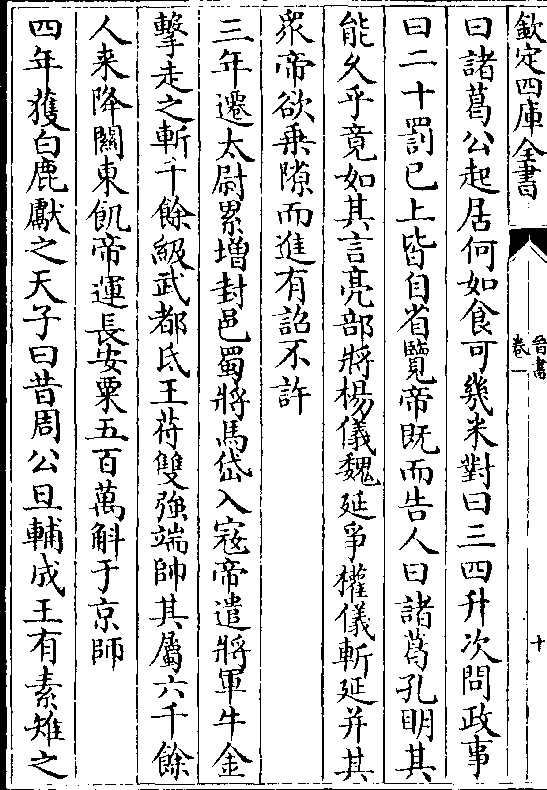 欽定四庫全書
晉書
卷一
十
曰諸葛公起居何如食可幾米對曰三四升次問政事
曰二十罰已上皆自省覽帝既而告人曰諸葛孔明其
能久乎竟如其言亮部將楊儀魏延爭權儀斬延并其
衆帝欲乗隙而進有詔不許
三年遷太尉累增封邑蜀將馬岱入寇帝遣將軍牛金
擊走之斬千餘級武都氐王苻雙強端帥其屬六千餘
人来降關東飢帝運長安粟五百萬斛于京師
四年獲白鹿獻之天子曰昔周公旦輔成王有素雉之